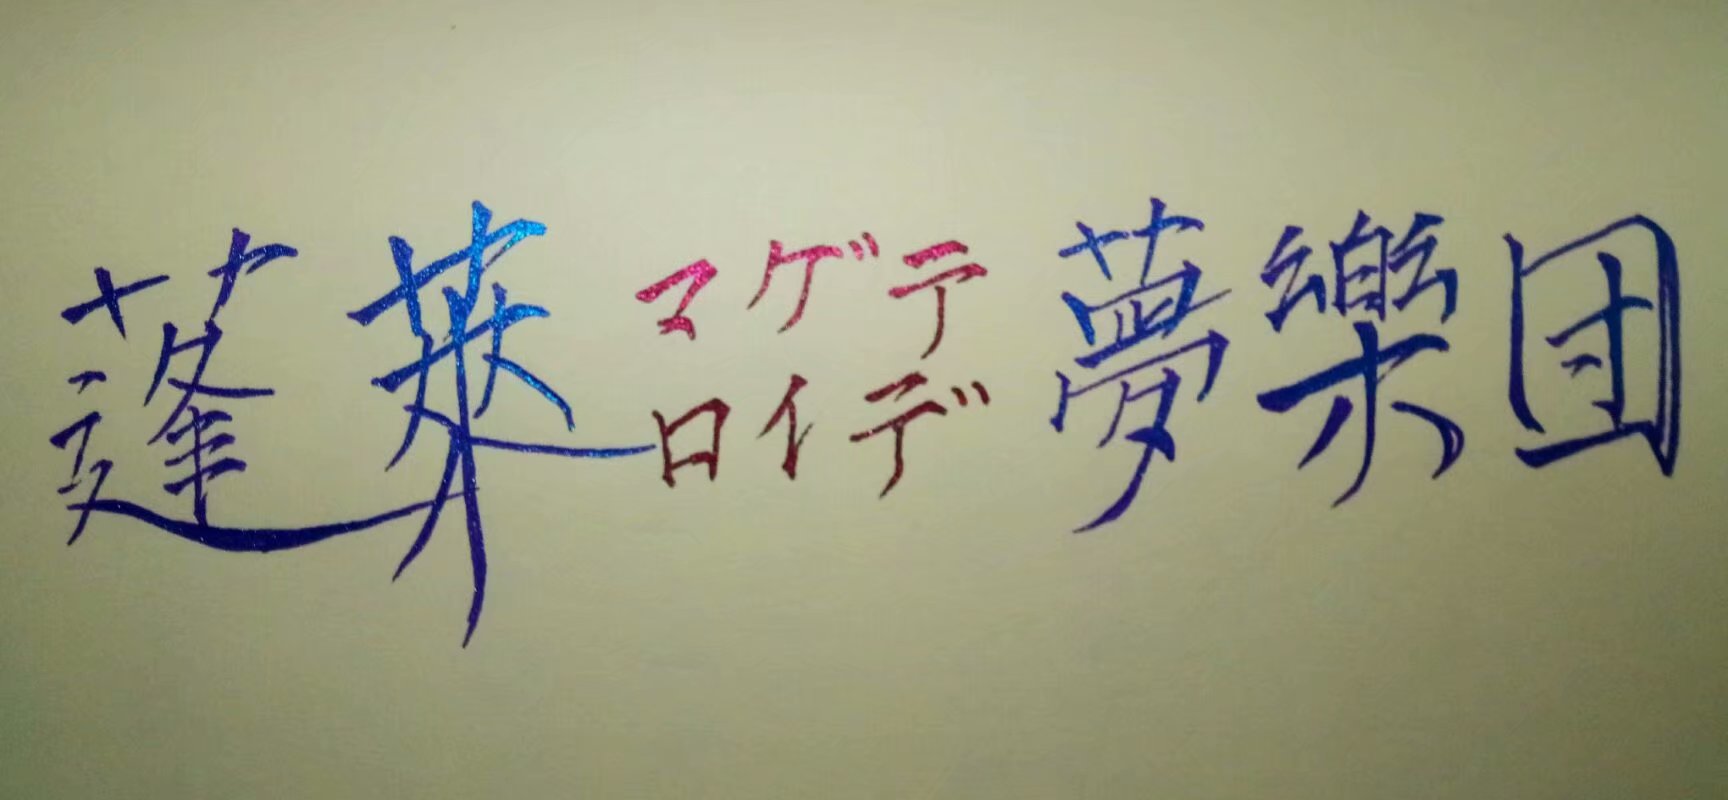 蓬萊マゲテ夢樂団
ロイデ